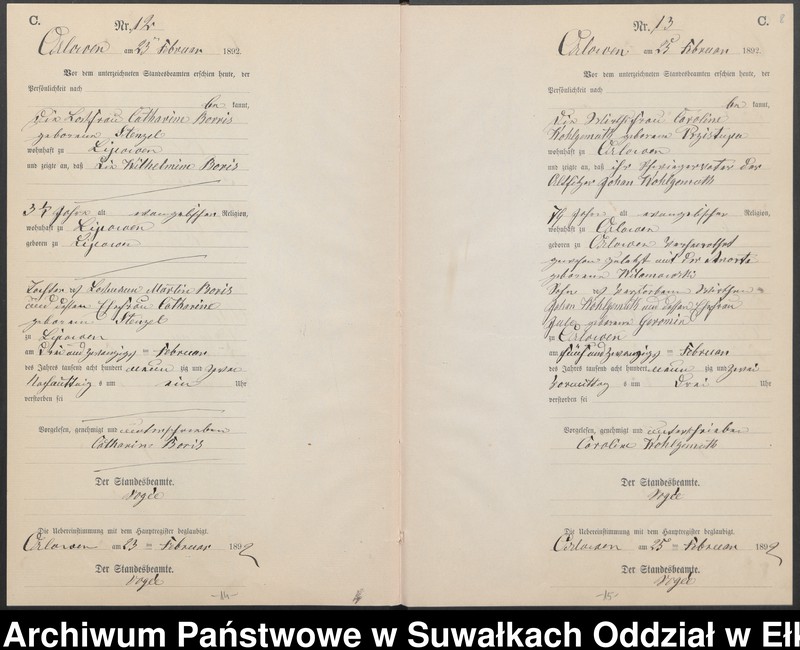 C.
Nr. 12
Orlowen am 23ten Februar 1892.
Vor dem unterzeichneten Standesbeamten erschien heute, der
Persönlichkeit nach
be kannt,
die Losfrau Catharine Borris
geborene Stenzel
wohnhaft zu Lipowen
und zeigte an, daß die Wilhelmine Boris
alt evangelischer Religion,
wohnhaft zu Lipowen
geboren zu Lipowen
Tochter des Losmann Martin Boris
und dessen Ehefrau Catharine
geborene Stenzel
zu Lipowen
am drei und zwanzigsten Februar
des Jahres tausend acht hundert neun zig und zwei
Nachmittag s um ein Uhr
verstorben sei
Vorgelesen, genehmigt und unterschrieben
Catharine Boris
Der Standesbeamte.
Die Uebereinstimmung mit dem Hauptregister beglaubigt.
Orlowen am 23 ten Februar 1892
Der Standesbeamte.
-14-
Nr. 13
C.
Orlowen am 25 Februar 1892.
Vor dem unterzeichneten Standesbeamten erschien heute, der
Persönlichkeit nach
be kannt,
die Wirthsfrau Caroline
Wohlgemuth geborene Przistupa
wohnhaft zu Orlowen
und zeigte an, daß ihr Schwiegervater der
Altsitzer Johan Wohlgemuth
Jahre alt evangelischer Religion,
wohnhaft zu Orlowen
geboren zu Orlowen verheirathet
gewesen zuletzt mit der
geborene
Sohn des verstorbenen Wirthen
Johan Wohlgemuth und dessen Ehefrau
geborene Geromin
zu Orlowen
am fünf und zwanzigsten Februar
des Jahres tausend acht hundert neun zig und zwei
Vormittag s um drei Uhr
verstorben sei
Vorgelesen, genehmigt und unterschrieben
Caroline Wohlgemuth
Der Standesbeamte.
Die Uebereinstimmung mit dem Hauptregister beglaubigt.
Orlowen am 25 ten Februar 1892
Der Standesbeamte.
-15-
Archiwum Państwowe w Suwałkach Oddział w Ełk